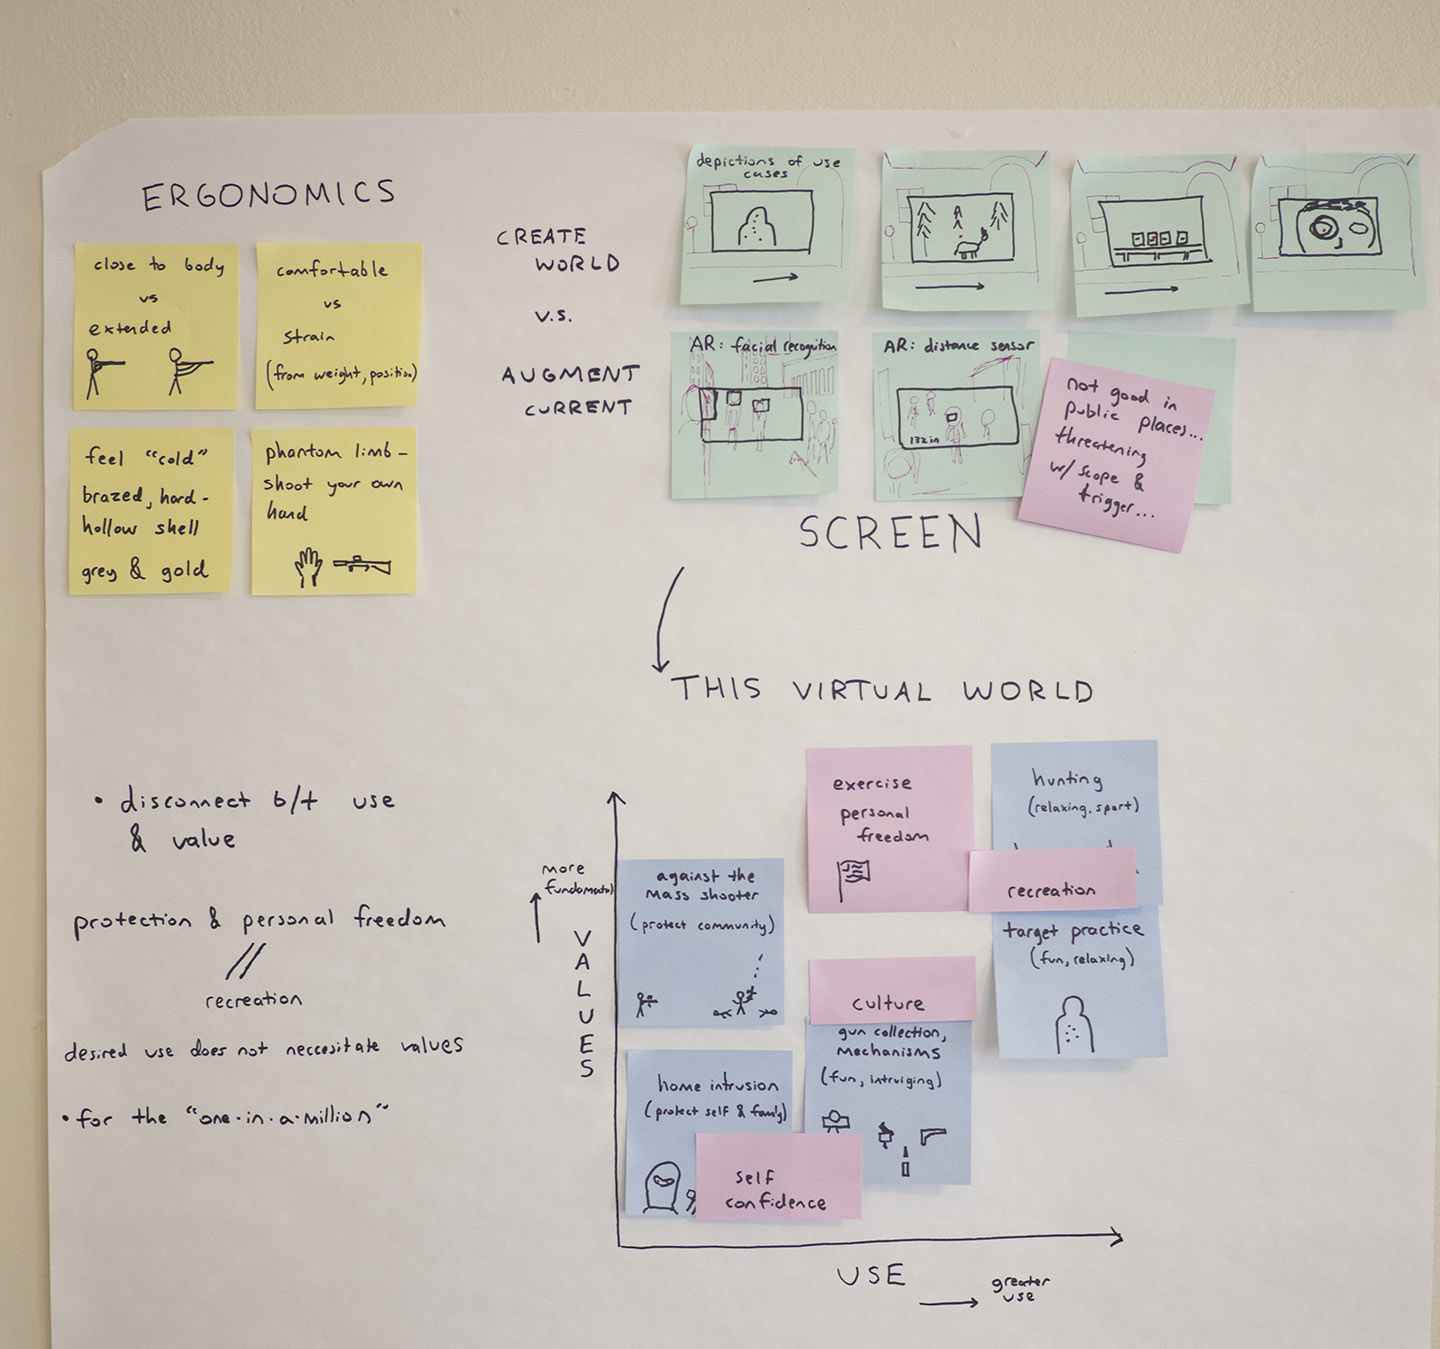 ERGONOMICS
close to body
vs
extended
comfortable
vs
strain
(from weight, position)
feel "cold"
brazed, hard-
hollow shell
grey & gold
phantom limb-
shoot your own
hand
CREATE
WORLD
v.s.
AUGMENT
CURRENT
depictions of use
cases
AR: facial recognition
AR: distance sensor
132in
not good in
public places...
threatening
w/ scope &
trigger...
SCREEN
THIS VIRTUAL WORLD
• disconnect b/t use
& value
protection & personal freedom
//
recreation
desired use does not neccesitate values
• for the "one-in-a-million"
more
fundamental
VALUES
against the
mass shooter
(protect community)
home intrusion
(protect self & family)
self
confidence
exercise
personal
freedom
culture
gun collection,
mechanisms
(fun, intruiging)
hunting
(relaxing, sport)
recreation
target practice
(fun, relaxing)
USE
greater
use